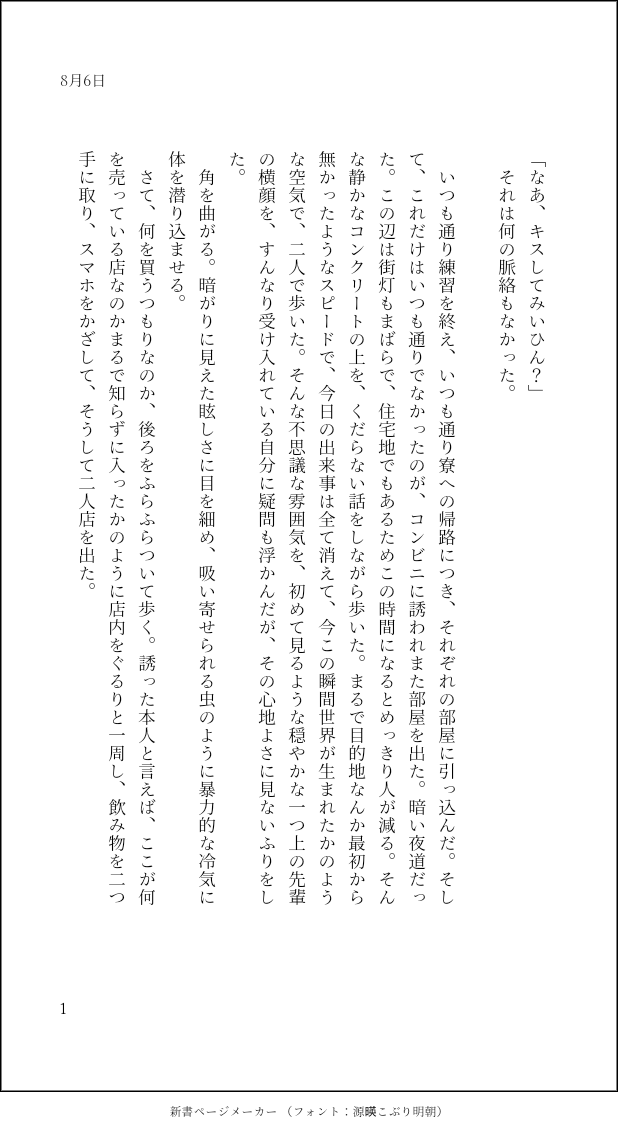 8月6日
「なあ、キスしてみいひん？」
　それは何の脈絡もなかった。
　いつも通り練習を終え、いつも通り寮への帰路につき、それぞれの部屋に引っ込んだ。そし
て、これだけはいつも通りでなかったのが、コンビニに誘われまた部屋を出た。暗い夜道だっ
た。この辺は街灯もまばらで、住宅地でもあるためこの時間になるとめっきり人が減る。そん
な静かなコンクリートの上を、くだらない話をしながら歩いた。まるで目的地なんか最初から
無かったようなスピードで、今日の出来事は全て消えて、今この瞬間世界が生まれたかのよう
な空気で、二人で歩いた。そんな不思議な雰囲気を、初めて見るような穏やかな一つ上の先輩
の横顔を、すんなり受け入れている自分に疑問も浮かんだが、その心地よさに見ないふりをし
た。
　角を曲がる。暗がりに見えた眩しさに目を細め、吸い寄せられる虫のように暴力的な冷気に
体を潜り込ませる。
　さて、何を買うつもりなのか、後ろをふらふらついて歩く。誘った本人と言えば、ここが何
を売っている店なのかまるで知らずに入ったかのように店内をぐるりと一周し、飲み物を二つ
手に取り、スマホをかざして、そうして二人店を出た。
1
新書ページメーカー （フォント：源暎こぶり明朝）